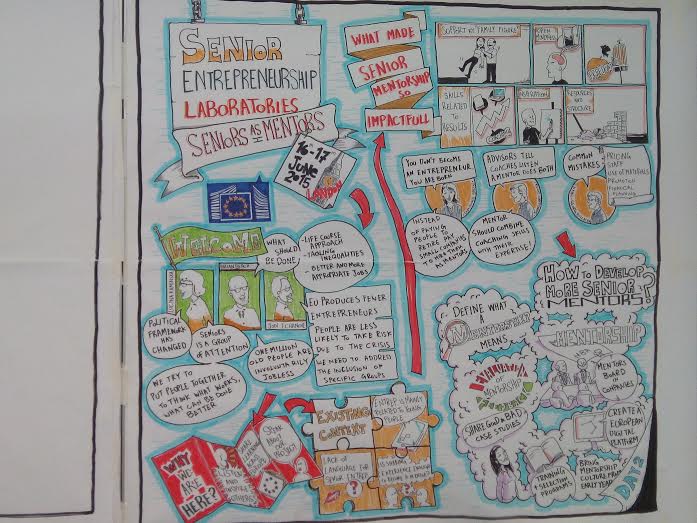 SENIOR
ENTREPRENEURSHIP
LABORATORIES
SENIORS AS MENTORS
16-17
JUNE
2015
LONDON
WHAT MADE
SENIOR
MENTORSHIP
SO
IMPACTFULL
SUPPORT TO FAMILY FIGURE
OPEN
MINDNESS
SKILLS
RELATED
TO
RESULTS
INSPIRATIONAL
RESOURCES
AND
STRUCTURE
YOU DON'T BECOME
AN ENTREPRENEUR
YOU ARE BORN
INSTEAD
OF PAYING
PEOPLE TO
RETIRE PAY
SMALL COMPANIES
TO HIRE THEM
AS MENTORS
ADVISORS TELL
COACHES LISTEN
A MENTOR DOES BOTH
MENTOR
SHOULD COMBINE
COACHING SKILLS
WITH THEIR
EXPERTISE!
COMMON
MISTAKES
PRICING
STAFF
USE OF MATERIALS
PROMOTION
FINANCIAL
PLANNING
WELCOME
WHAT
SHOULD
BE DONE
- LIFE COURSE
APPROACH
- TACKLING
INEQUALITIES
- BETTER AND MORE
APPROPRIATE JOBS
POLITICAL
FRAMEWORK
HAS
CHANGED
SENIORS
IS A GROUP
OF ATTENTION
ONE MILLION
OLD PEOPLE ARE
INVOLUNTARILY
JOBLESS
EU PRODUCES FEWER
ENTREPRENEURS
PEOPLE ARE LESS
LIKELY TO TAKE RISK
DUE TO THE CRISIS
WE NEED TO ADDRESS
THE INCLUSION OF
SPECIFIC GROUPS
WE TRY TO
PUT PEOPLE TOGETHER
TO THINK WHAT WORKS,
WHAT CAN BE DONE
BETTER
WHY
WE ARE
HERE?
SPEAK
ABOUT
OUR
PROJECT
EXISTING
CONTEXT
LACK OF
LANGUAGE FOR
SENIOR ENTREP.
HOW TO DEVELOP
MORE SENIOR
MENTORS?!
DEFINE WHAT
A
MEANS
MENTORSHIP
EVALUATION
OF
MENTORSHIP
MENTORS
BOARD IN
COMPANIES
SHARE GOOD & BAD
CASE STUDIES
CREATE A
EUROPEAN
DIGITAL
PLATFORM
TRAINING +
SELECTION
PROGRAMS
BRING
MENTORSHIP
CULTURE FROM
EARLY YEARS
DAY 2